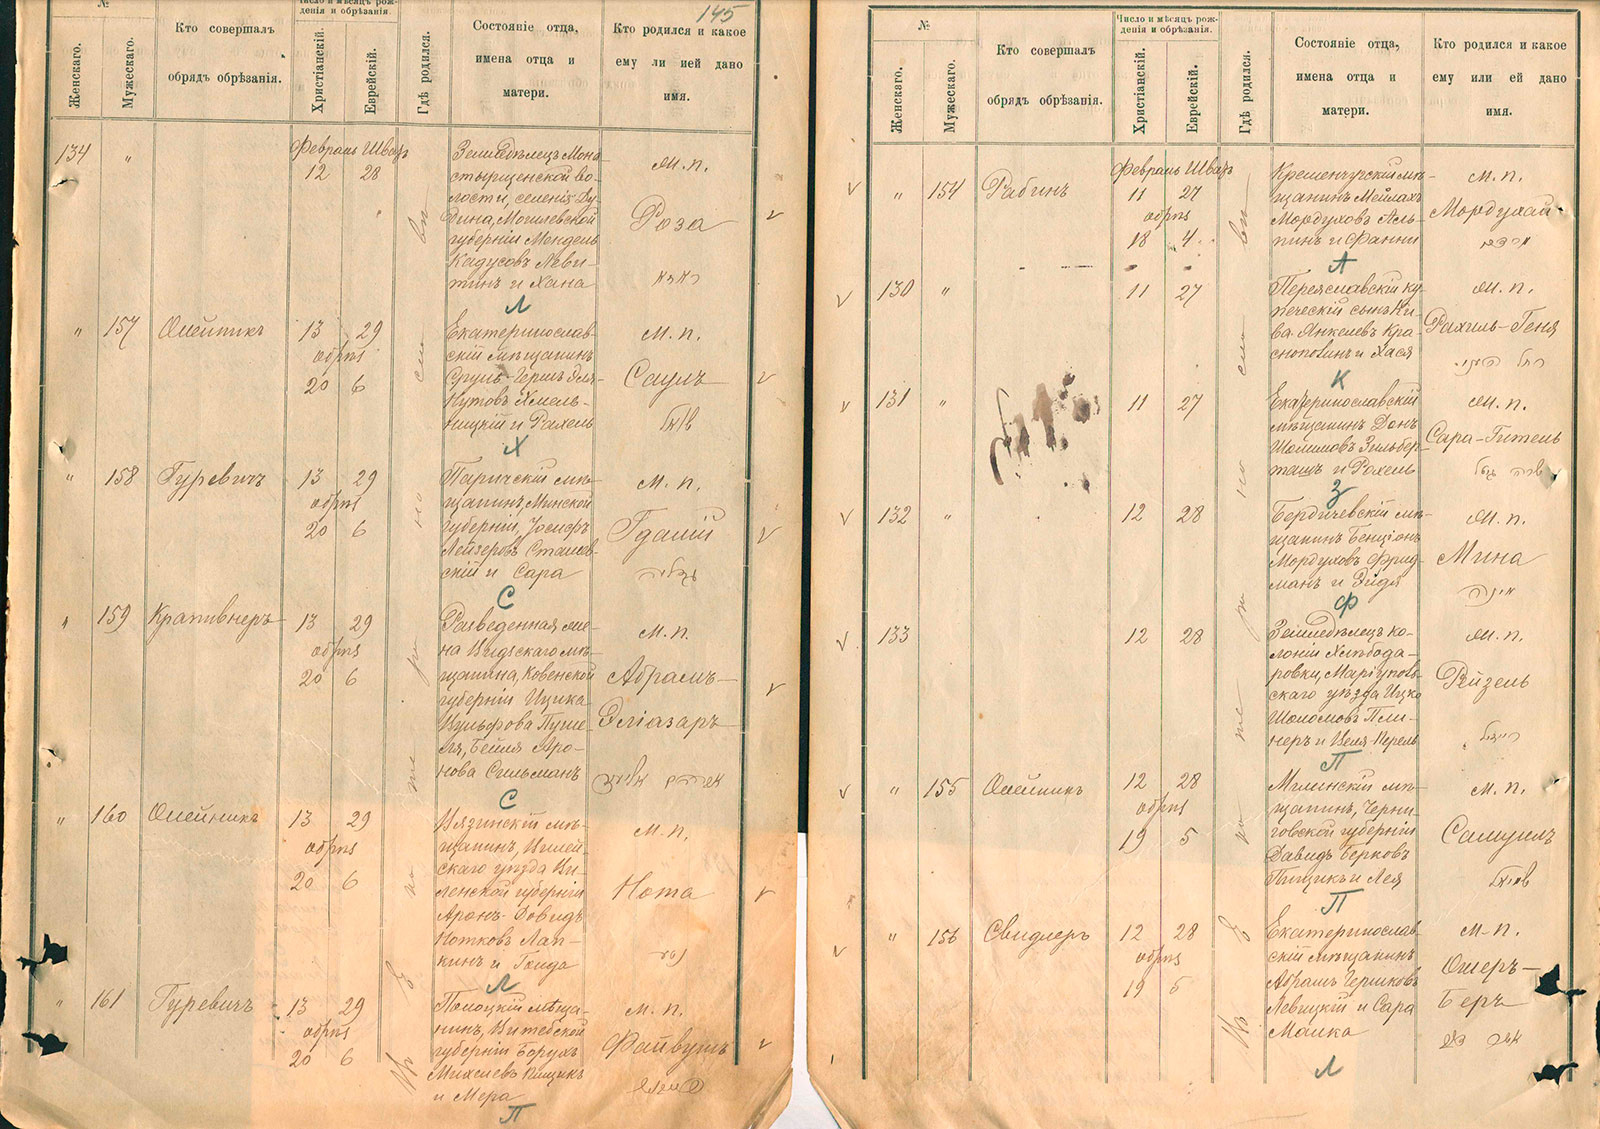 145
№
Женскаго.
Мужескаго.
Кто совершалъ
обрядъ обрѣзанія.
Число и мѣсяцъ рож-
денія и обрѣзанія.
Христіанскій.
Еврейскій.
Гдѣ родился.
Состояніе отца,
имена отца и
матери.
Кто родился и какое
ему ли ией дано
имя.
134 "
Февраль Шватъ
12 28
Земледѣлецъ Мона-
стырщенской во-
лости, селенія Ду-
дина, Могилевской
губерніи Мендель
Кадусовъ Леви-
тинъ и Хана
м. п.
Роза
Л
" 157 Олейникъ
13 29
обрѣз
20 6
Екатеринослав-
скій мѣщанинъ
Сруль-Гершъ
Нутовъ Хмель-
ницкій и Рахель
м. п.
Саулъ
שאול
Х
" 158 Гуревичъ
13 29
обрѣз
20 6
Паричскій мѣ-
щанинъ, Минской
губерніи, Іосифъ
Лейзеровъ Сташев-
скій и Сара
м. п.
Гдалій
גדליה
С
" 159 Крапивнеръ
13 29
обрѣз
20 6
Разведенная же-
на Видзскаго мѣ-
щанина, Ковенской
губерніи Ицика
Вульфова
Бейля Аро-
нова Сильманъ
м. п.
Абрамъ-
Эліазаръ
אברהם אליעזר
С
" 160 Олейникъ
13 29
обрѣз
20 6
мѣ-
щанинъ, Вилей-
скаго уѣзда Ви-
ленской губерніи
Аронъ-Довидъ
Нотковъ Лап-
кинъ и Гинда
м. п.
Нота
Л
" 161 Гуревичъ
13 29
обрѣз
20 6
Полоцкій мѣща-
нинъ, Витебской
губерніи Борухъ
Михелевъ Пищикъ
и Мера
м. п.
Файвушъ
П
Въ Екатеринославѣ
№
Женскаго.
Мужескаго.
Кто совершалъ
обрядъ обрѣзанія.
Число и мѣсяцъ рож-
денія и обрѣзанія.
Христіанскій.
Еврейскій.
Гдѣ родился.
Состояніе отца,
имена отца и
матери.
Кто родился и какое
ему или ей дано
имя.
" 154 Рабинъ
Февраль Шватъ
11 27
обрѣз
18 4
Кременчугскій мѣ-
щанинъ Мейлахъ
Мордуховъ Аль-
пинъ и Фанни
м. п.
Мордухай
מרדכי
А
130 "
11 27
Переяславскій ку-
печескій сынъ Ки-
ва Янкелевъ Кра-
снопольинъ и Хася
м. п.
Рахиль-Геня
רחל
К
131 "
11 27
Екатеринославскій
мѣщанинъ Донъ
Шолимовъ Зильбер-
ташъ и Рахель
м. п.
Сара-Гитель
שרה גיטל
З
132 "
12 28
Бердичевскій мѣ-
щанинъ Бенціонъ
Мордуховъ Фрид-
манъ и Эйдя
м. п.
Мина
מינה
Ф
133
12 28
Земледѣлецъ ко-
лоніи Хлѣбода-
ровки, Маріуполь-
скаго уѣзда Ицко
Шоломовъ Пли-
неръ и Целя-Перель
м. п.
Рейзель
רייזיל
П
" 155 Олейникъ
12 28
обрѣз
19 5
Мглинскій мѣ-
щанинъ, Черни-
говской губерніи
Давидъ Берковъ
Пищикъ и Лея
м. п.
Самуилъ
שמואל
П
" 156 Свидлеръ
12 28
обрѣз
19 5
Екатеринослав-
скій мѣщанинъ
Абрамъ Гершковъ
Левицкій и Сара
Малка
м. п.
Ошеръ-
Беръ
אשר בער
Л